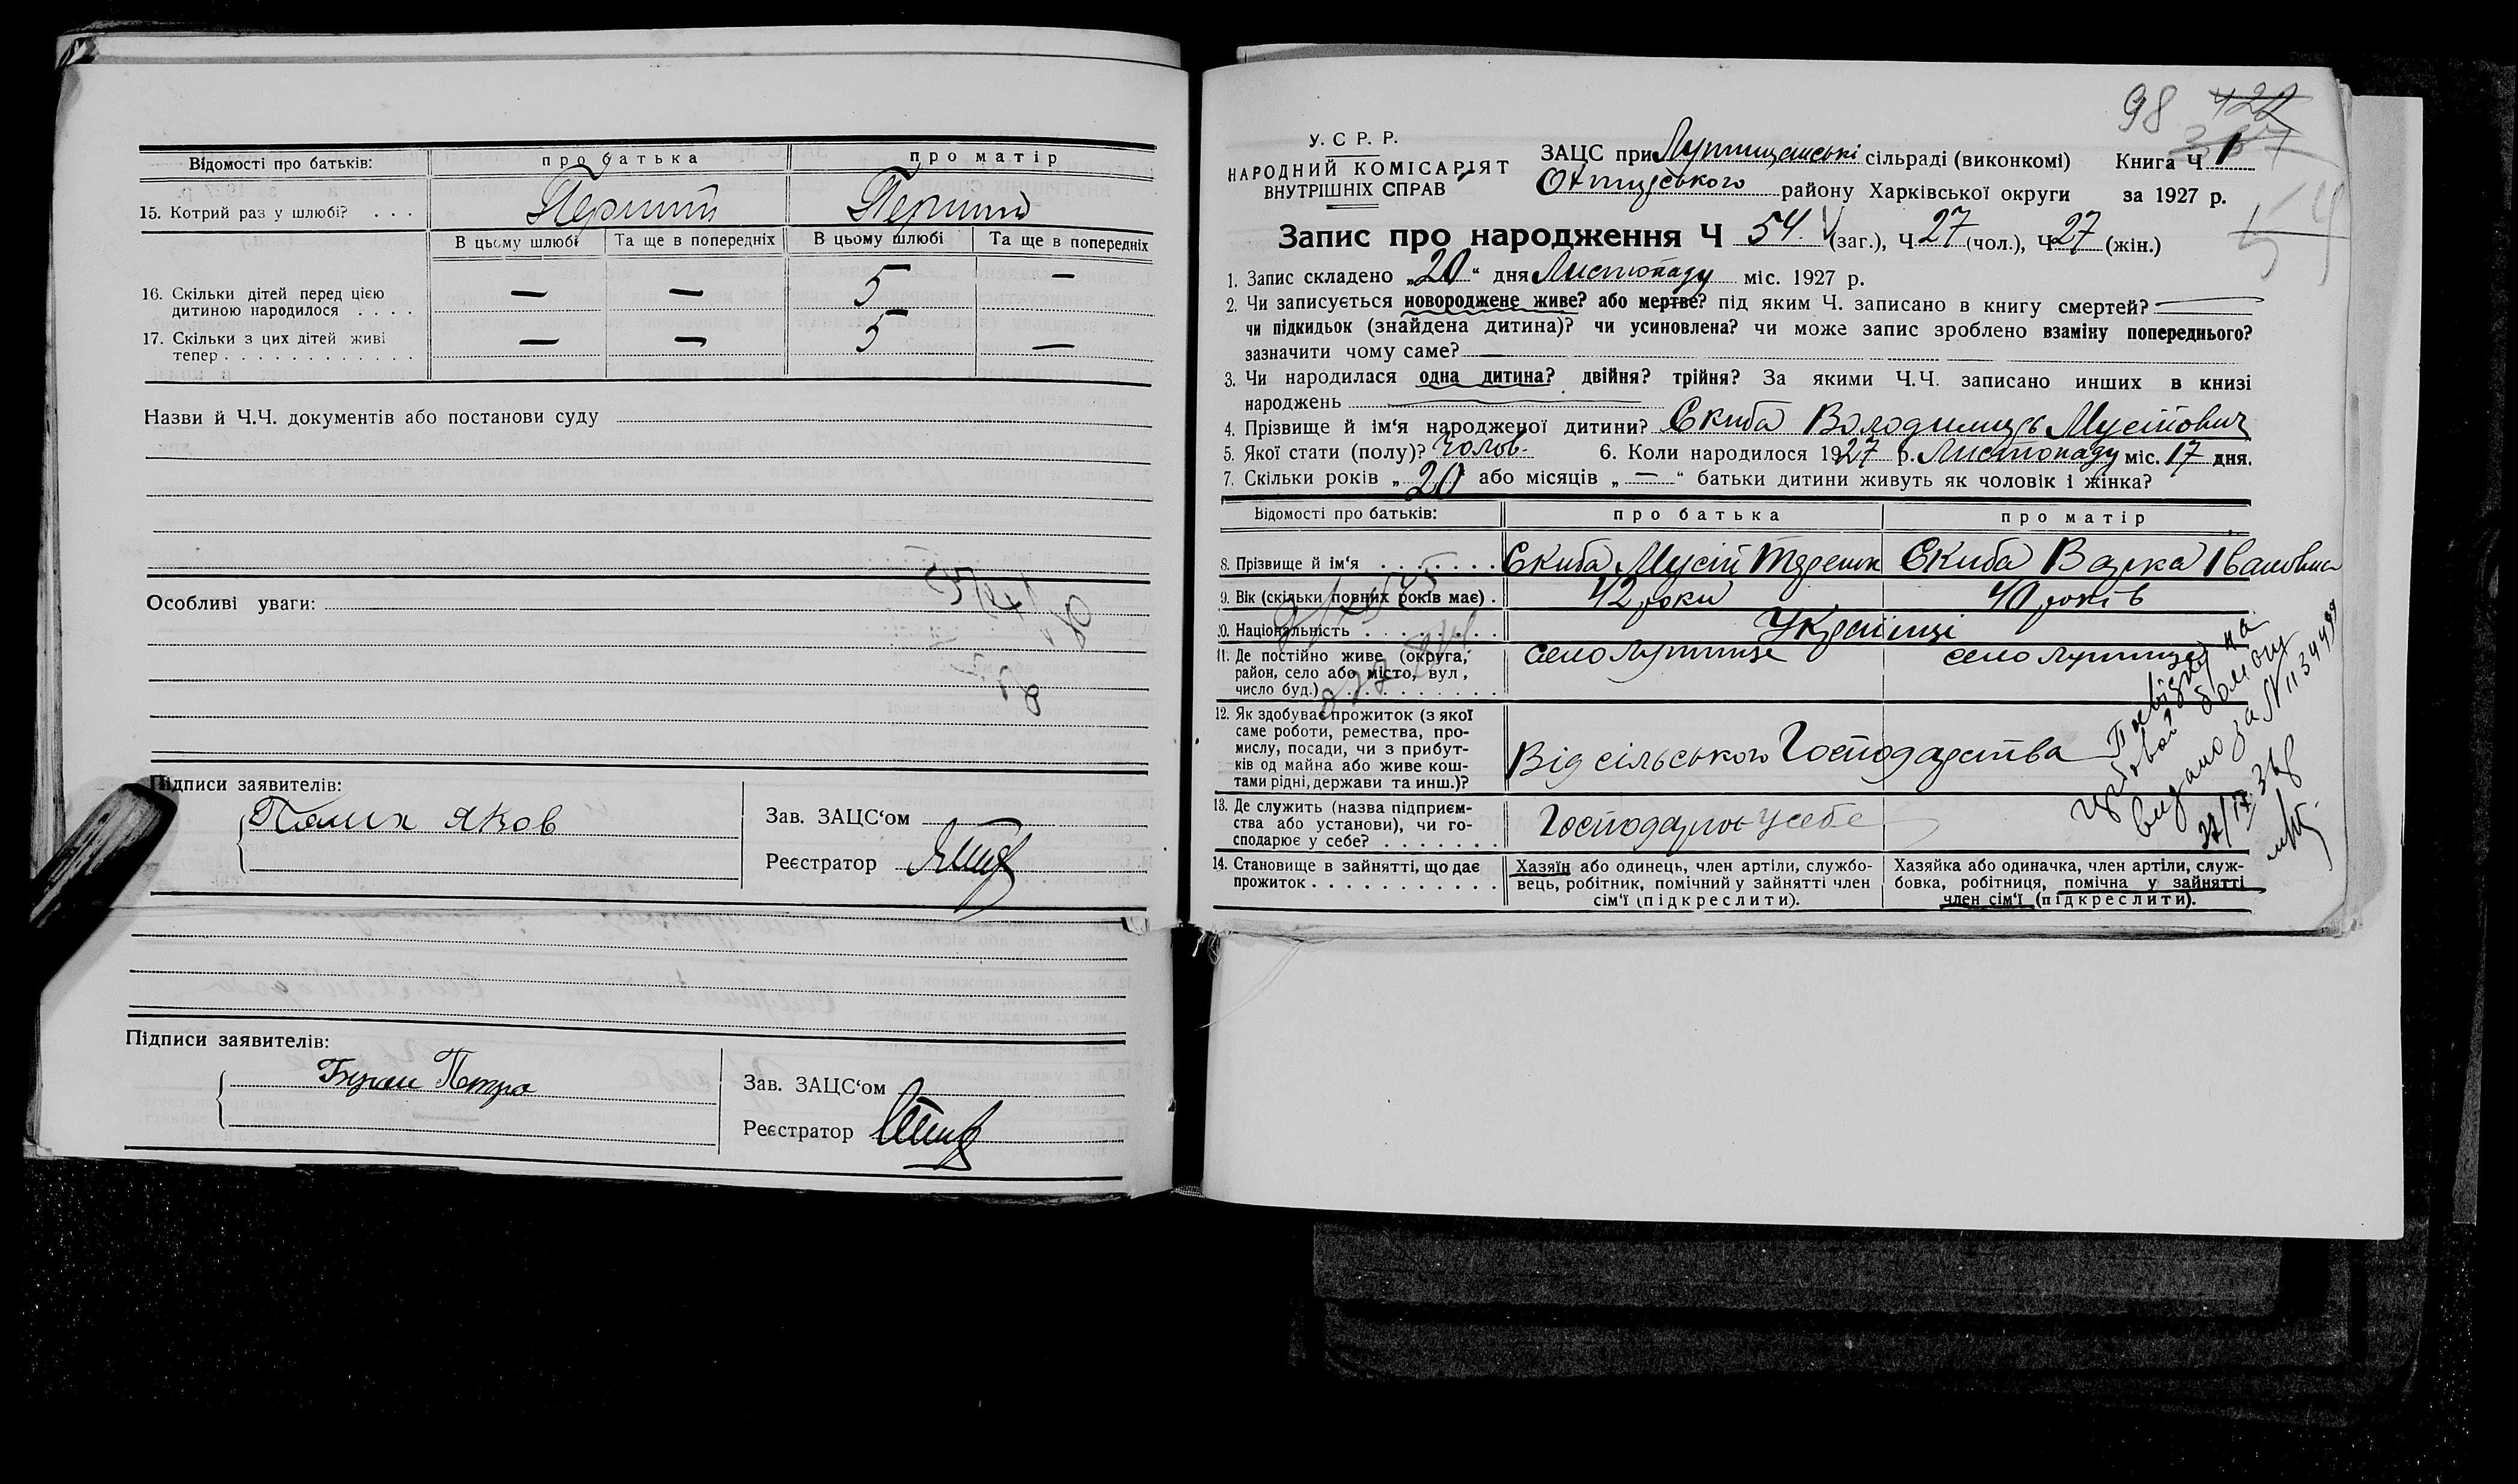 Відомості про батьків: про батька про матір
15. Котрий раз у шлюбі? . . . Перший Перший
В цьому шлюбі Та ще в попередніх В цьому шлюбі Та ще в попередніх
16. Скільки дітей перед цією
дитиною народилося . . . . — — 5 —
17. Скільки з цих дітей живі
тепер . . . . . . . . . . . . . — — 5 —
Назви й Ч.Ч. документів або постанови суду
Особливі уваги:
Підписи заявителів:
Яков
Зав. ЗАЦС‘ом
Реєстратор
Підписи заявителів:
Петро
Зав. ЗАЦС‘ом
Реєстратор
98 422
У. С. Р. Р.
НАРОДНИЙ КОМІСАРІЯТ
ВНУТРІШНІХ СПРАВ
ЗАЦС при сільраді (виконкомі) Книга Ч 1
району Харківської округи за 1927 р.
54
Запис про народження Ч 54. (заг.), Ч 27 (чол.), Ч 27 (жін.)
1. Запис складено „20“ дня Листопаду міс. 1927 р.
2. Чи записується новороджене живе? або мертве? під яким Ч. записано в книгу смертей? —
чи підкидьок (знайдена дитина)? чи усиновлена? чи може запис зроблено взаміну попереднього?
зазначити чому саме? —
3. Чи народилася одна дитина? двійня? трійня? За якими Ч.Ч. записано инших в книзі
народжень —
4. Прізвище й ім‘я народженої дитини? Скиба Володимирь Мусійович
5. Якої стати (полу)? Чолов. 6. Коли народилося 1927 р. Листопаду міс. 17 дня.
7. Скільки років „20“ або місяців „—“ батьки дитини живуть як чоловік і жінка?
Відомості про батьків: про батька про матір
8. Прізвище й ім‘я . . . . . . . Скиба Мусій Скиба Варка Івановна
9. Вік (скільки повних років має) . 42 роки 40 років
10. Національність . . . . . . . . Українці
11. Де постійно живе (округа,
район, село або місто, вул.,
число буд.) . . . . . . . . . . . село село
12. Як здобуває прожиток (з якої
саме роботи, ремества, про-
мислу, посади, чи з прибут-
ків од майна або живе кош-
тами рідні, держави та инш.)?
Від сільського Господарства
13. Де служить (назва підприєм-
ства або установи), чи го-
сподарює у себе? . . . . . . .
Господарює у себе
14. Становище в зайнятті, що дає
прожиток . . . . . . . . . . .
Хазяїн або одинець, член артіли, службо-
вець, робітник, помічний у зайнятті член
сім‘ї (підкреслити).
Хазяйка або одиначка, член артіли, служ-
бовка, робітниця, помічна у зайнятті
член сім‘ї (підкреслити).
видано за №